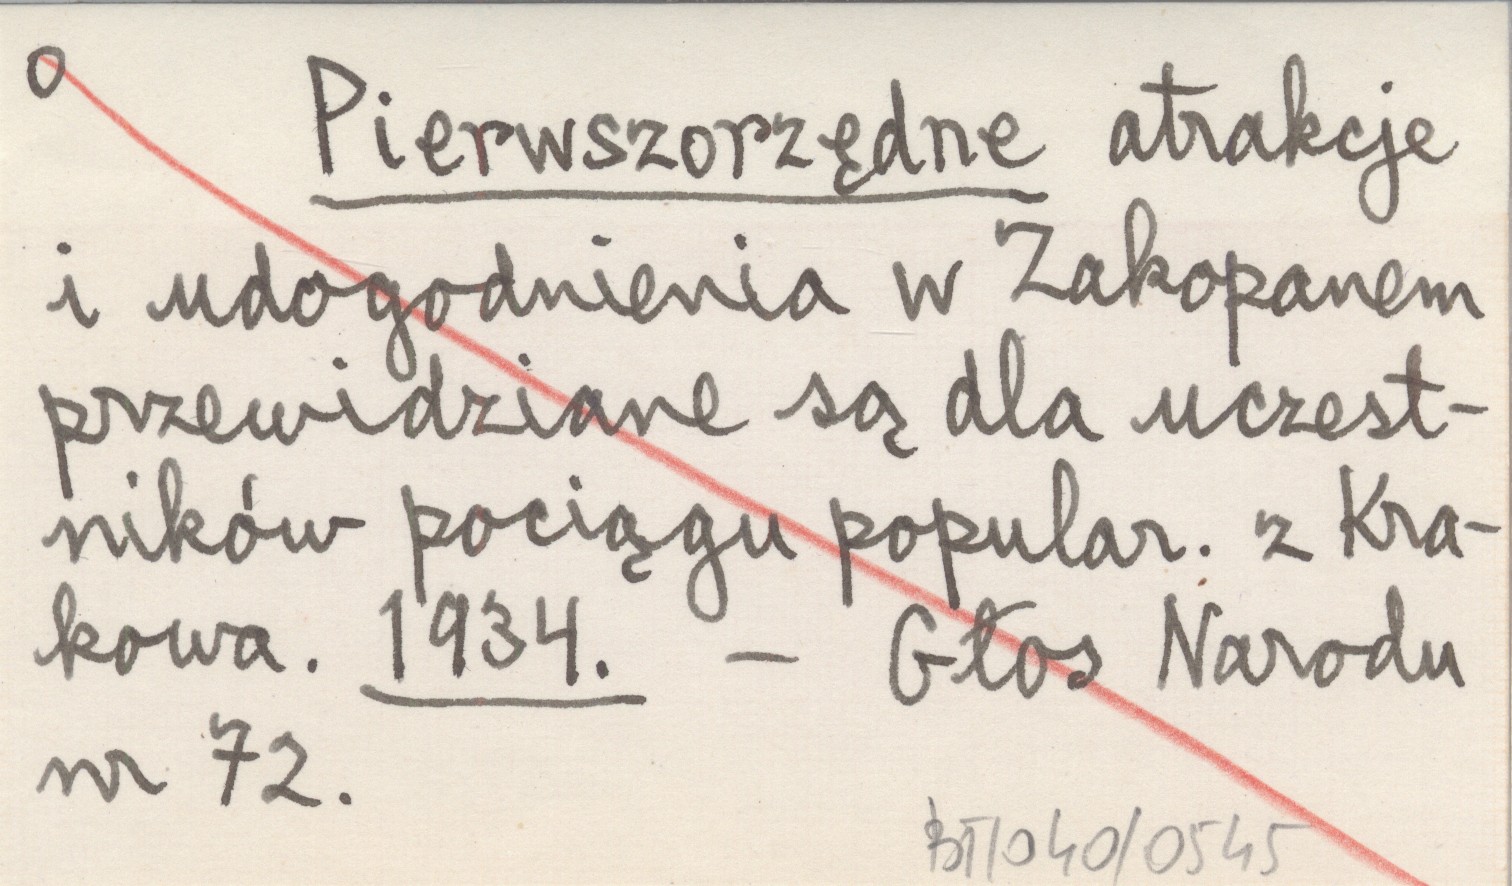 o Pierwszorzędne atrakcje
i udogodnienia w Zakopanem
przewidziane są dla uczest-
ników pociągu popular. z Kra-
kowa. 1934. — Głos Narodu
nr 72.
BT/040/0545